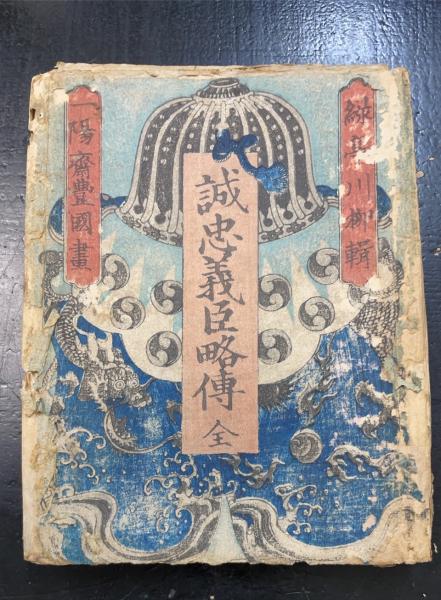 緑亭川柳輯
誠忠義臣略傳 全
一陽齋豊國畫